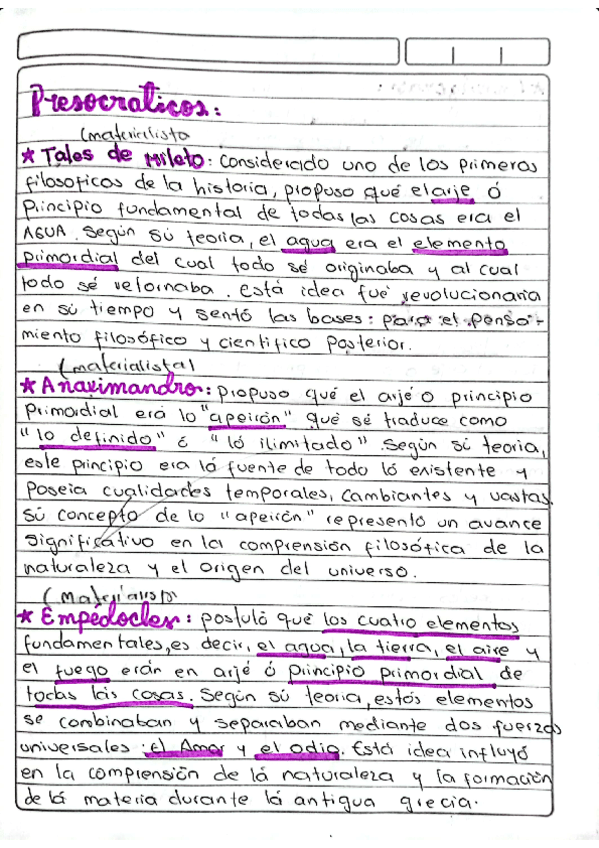 Presocraticos:
(materialista
★ Tales de Mileto: Considerado uno de los primeros
filosoficos de la historia, propuso qué el arje ó
Principio fundamental de todas las cosas era el
AGUA. Según sú teoria, el agua era el elemento
primordial del cual todo sé originaba y al cual
todo sé retornaba. está idea fué revolucionaria
en sú tiempo y sentó las bases: para el pensa-
miento filosófico y cientifico posterior.
(materialista)
★ Anaximandro: propuso qué el arjé o principio
primordial erá lo "apeirón" qué sé traduce como
"lo definido" ó "ló ilimitado" según sú teoria,
este principio era ló fuente de todo ló existente y
Poseia cualidades temporales, cambiantes y vastas.
Sú concepto de lo "apeirón" representó un avance
significativo en la comprensión filosófica de la
naturaleza y el origen del universo.
(Materialista
★ Empédocles: postuló qué los cuatro elementos
fundamentales, es decir, el agua, la tierra, el aire y
el fuego erán en arjé ó principio primordial de
todas lás cosas. Según sú teoria, estós elementos
se combinaban y separaban mediante dos fuerzas
universales: El Amor y el odio. Está idea influyó
en la comprensión de lá naturaleza y la formación
de lá materia durante lá antigua grecia.